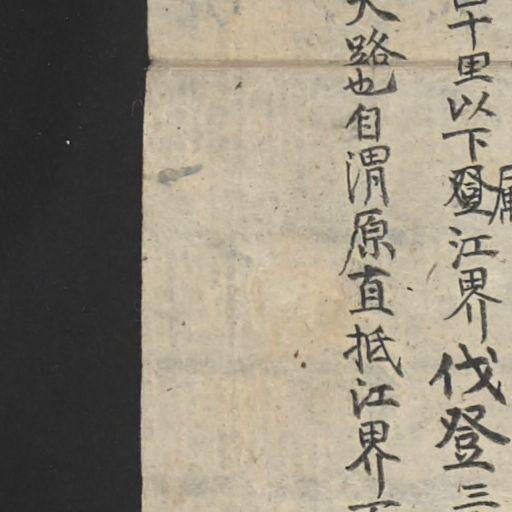 十里以下登江界伐登三
路也自渭原直抵江界